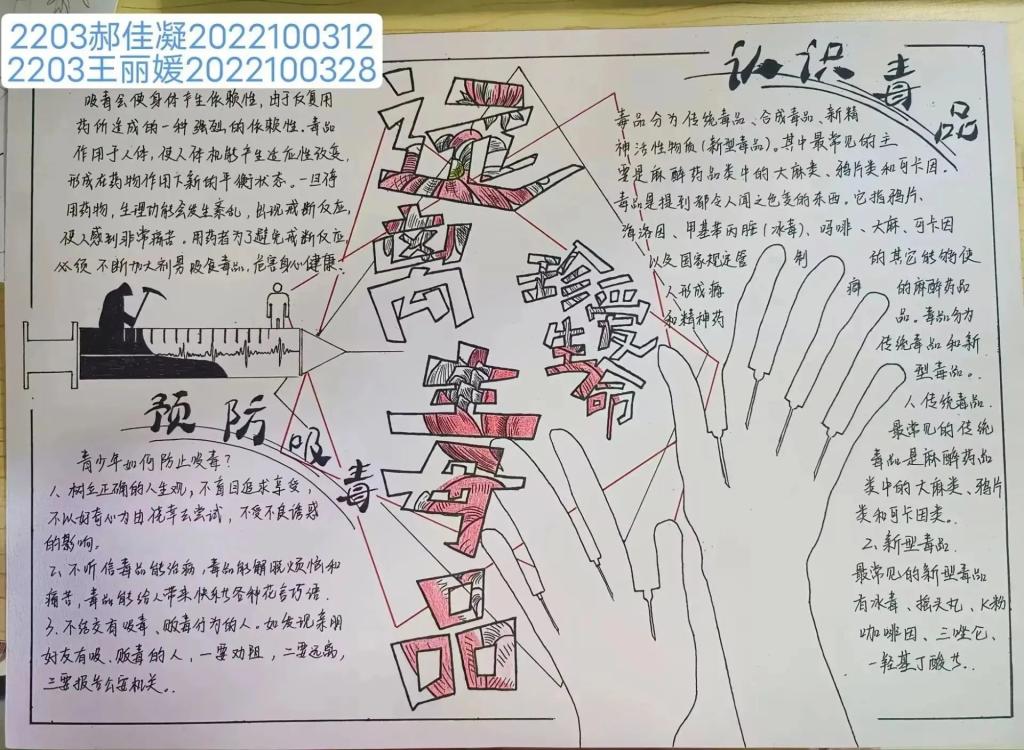 2203郝佳凝2022100312
2203王丽媛2022100328
吸毒会使身体产生依赖性，由于反复用
药所造成的一种强烈的依赖性。毒品
作用于人体，使人体机能产生适应性改变，
形成在药物作用下新的平衡状态。一旦停
用药物，生理功能会发生紊乱，出现戒断反应，
使人感到非常痛苦。用药者为了避免戒断反应，
必须 不断加大剂量吸食毒品，危害身心健康。
远离毒品
珍爱生命
认识毒品
毒品分为传统毒品、合成毒品、新精
神活性物质（新型毒品）。其中最常见的主
要是麻醉药品类中的大麻类、鸦片类和可卡因。
毒品是提到都令人闻之色变的东西。它指鸦片、
海洛因、甲基苯丙胺（冰毒）、吗啡、大麻、可卡因
以及国家规定管 制 的其它能够使
人形成瘾 癖 的麻醉药品
和精神药 品。毒品分为
传统毒品和新
型毒品。
1、传统毒品.
最常见的传统
毒品是麻醉药品
类中的大麻类、鸦片
类和可卡因类。
2、新型毒品.
最常见的新型毒品
有冰毒、摇头丸、K粉
咖啡因、三唑仑、
一轻基丁酸等..
预防吸毒
青少年如何防止吸毒？
1、树立正确的人生观，不盲目追求享受，
不以好奇心为由侥幸去尝试，不受不良诱惑
的影响。
2、不听信毒品能治病，毒品能解脱烦恼和
痛苦，毒品能给人带来快乐等各种花言巧语.
3、不结交有吸毒、贩毒行为的人。如发现亲朋
好友有吸、贩毒的人，一要劝阻，二要远离，
三要报告公安机关。